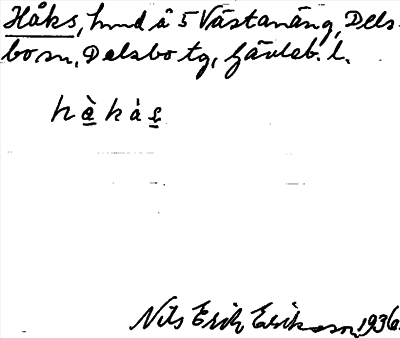 Håks, hmd å 5 Västanäng, Dels-
bo sn, Delsbo tg, Gävleb. l.
hàkás
Nils Erik Eriksson, 1936.